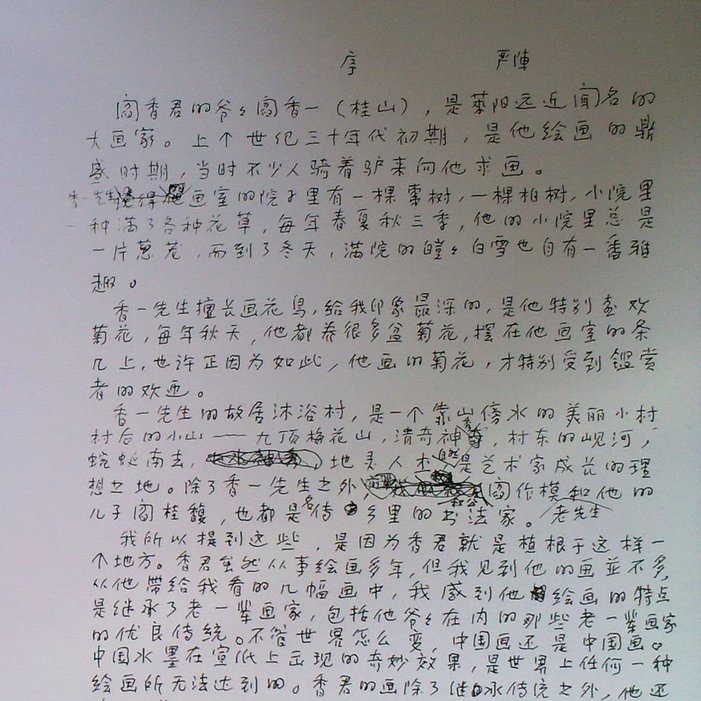 序 严陣
阎香君的爷々阎香一（桂山），是莱阳远近闻名的
大画家。上个世纪三十年代初期，是他绘画的鼎
盛时期，当时不少人骑着驴来向他求画。
香一先生画室的院子里有一棵枣树，一棵柏树，小院里
种满了各种花草，每年春夏秋三季，他的小院里总是
一片葱茏，而到了冬天，满院的皚々白雪也自有一番雅
趣。
香一先生擅长画花鸟，给我印象最深的，是他特别喜欢
菊花，每年秋天，他都养很多盆菊花，摆在他画室的条
几上，也许正因为如此，他画的菊花，才特别受到鑑赏
者的欢迎。
香一先生的故居沐浴村，是一个靠山傍水的美丽小村
村后的小山——九顶梅花山，清奇神秀，村东的岘河，
蜿蜒南去，地灵人杰，自然是艺术家成长的理
想之地。除了香一先生之外，阎作模和他的
儿子阎桂馥，也都是名传乡里的书法家。老先生
我所以提到这些，是因为香君就是植根于这样一
个地方。香君虽然从事绘画多年，但我见到他的画並不多，
从他带给我看的几幅画中，我感到他绘画的特点
是继承了老一辈画家，包括他爷々在内的那些老一辈画家
的优良传统。不管世界怎么变，中国画还是中国画。
中国水墨在宣纸上出现的奇妙效果，是世界上任何一种
绘画所无法达到的。香君的画除了继承传统之外，他还